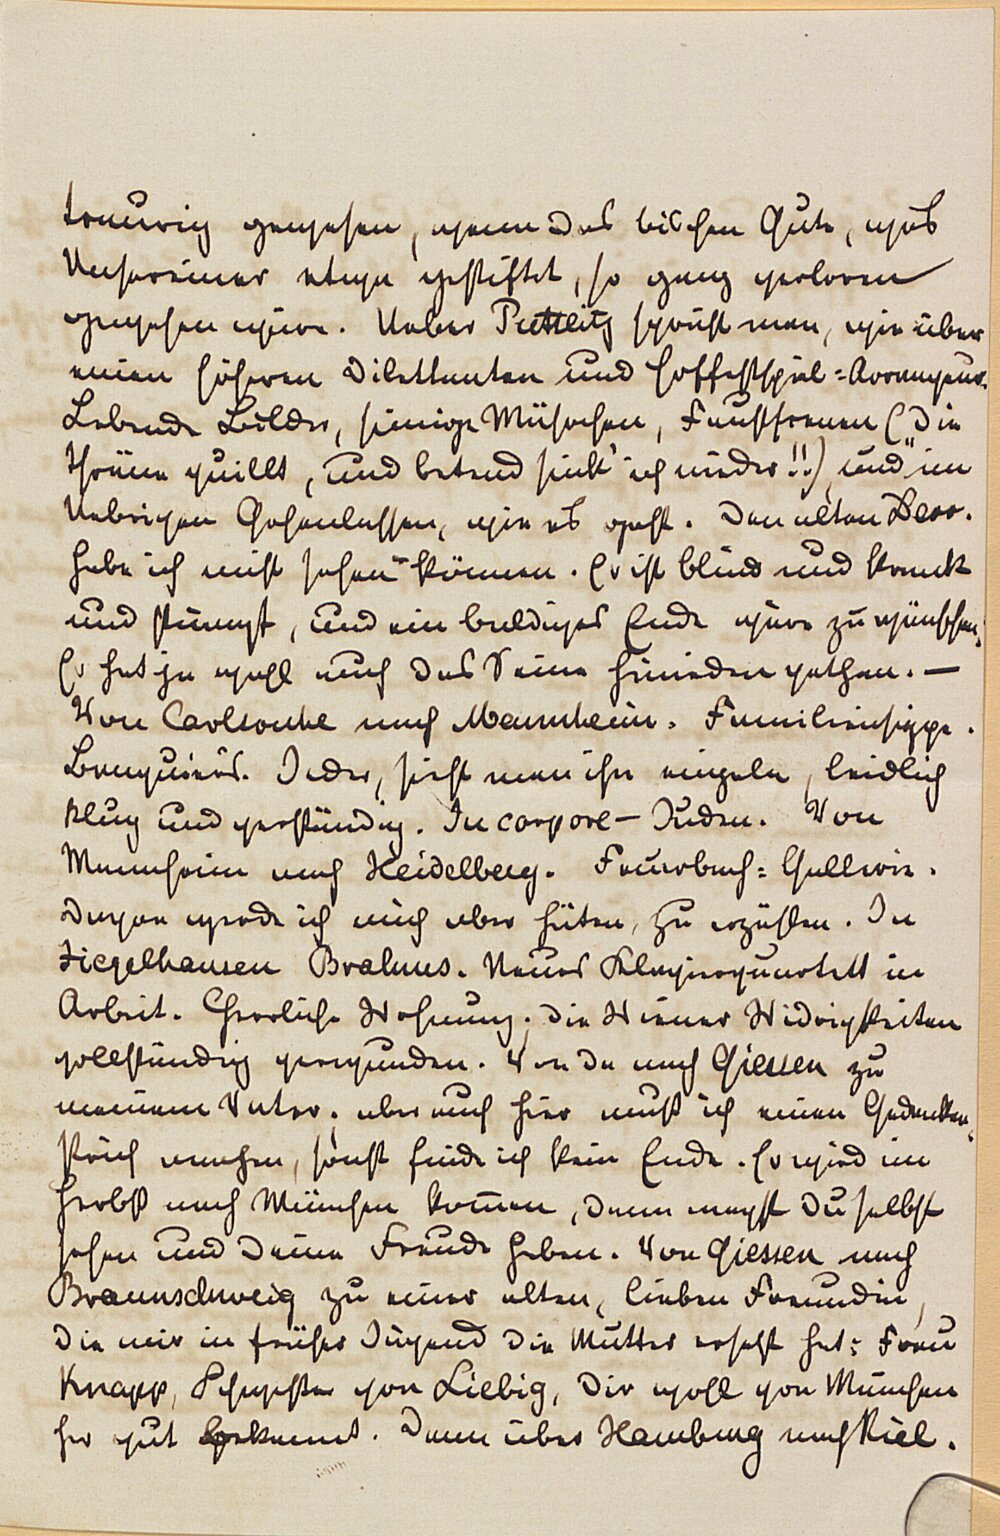 traurig gewesen, wenn das bischen Gute, was
Unsereiner etwa gestiftet, so ganz verloren
gewesen wäre. Ueber Puttlitz spricht man, wie über
einen höheren Dilettanten und Hoffestspiel-Arrangeur.
Lebende Bilder, sinnige Märchen, Faustscenen ("Die
Thräne quillt, und betend sink' ich nieder!!) und im
Uebrigen Gehenlassen, wie es geht. Den alten Devr.
habe ich nicht sehen können. Er ist blind und krank
und stumpf, und ein baldiges Ende wäre zu wünschen.
Er hat ja wohl auch das Seine hinieden gethan. —
Von Carlsruhe nach Mannheim. Familiensippe.
Banquiers. Jeder, sieht man ihn einzeln, leidlich
klug und verständig. In corpore — Juden. Von
Mannheim nach Heidelberg. Feuerbach-Gallerie.
Davon werde ich mich aber hüten, zu erzählen. In
Ziegelhausen Brahms. Neues Klavierquartett in
Arbeit. Herrliche Wohnung; die Wiener Widrigkeiten
vollständig verwunden. Von da nach Giessen zu
meinem Vater; aber auch hier muß ich einen Gedanken-
strich machen, sonst finde ich kein Ende. Er wird im
Herbst nach München kommen, dann magst Du selbst
sehen und Deine Freude haben. Von Giessen nach
Braunschweig zu einer alten, lieben Freundin,
die mir in früher Jugend die Mutter ersetzt hat: Frau
Knapp, Schwester von Liebig, Dir wohl von München
her gut bekannt. Dann über Hamburg nach Kiel.